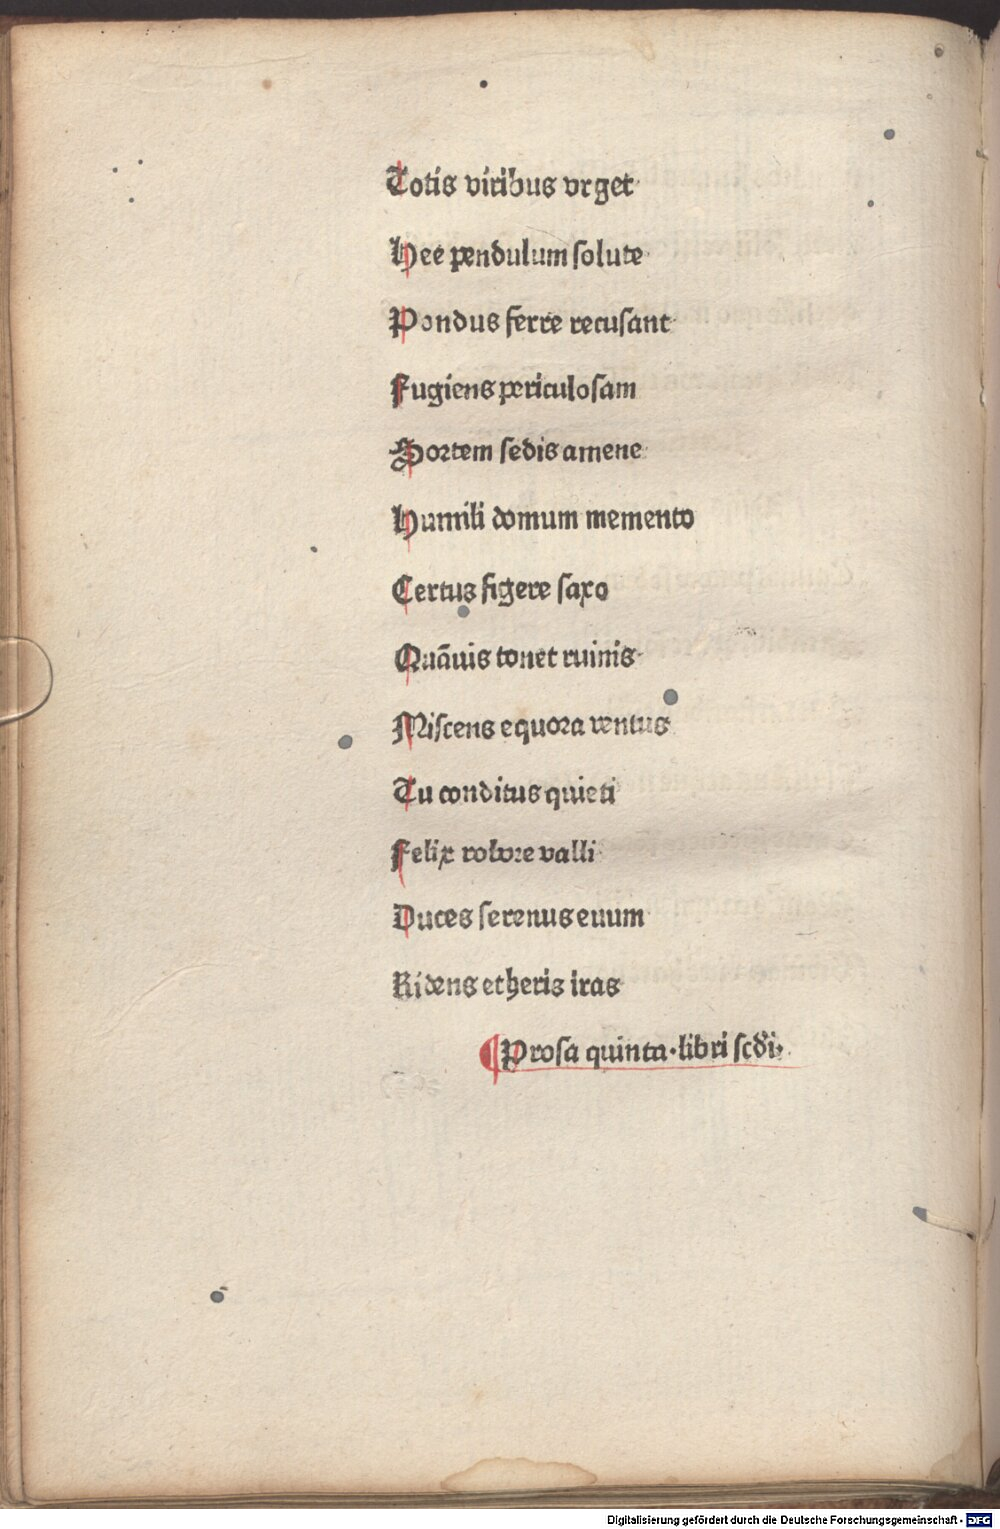 Totis viribus vrget·
Hee pendulum solute·
Pondus ferre recusant·
Fugiens periculosam
Sortem sedis amene·
Humili domum memento
Certus figere saxo
Quāuis tonet ruinis·
Miscens equora ventus
Tu conditus quieti
Felix robore valli·
Duces serenus euum·
Ridens etheris iras
¶Prosa quinta·libri scdi·
Digitalisierung gefördert durch die Deutsche Forschungsgemeinschaft - DFG